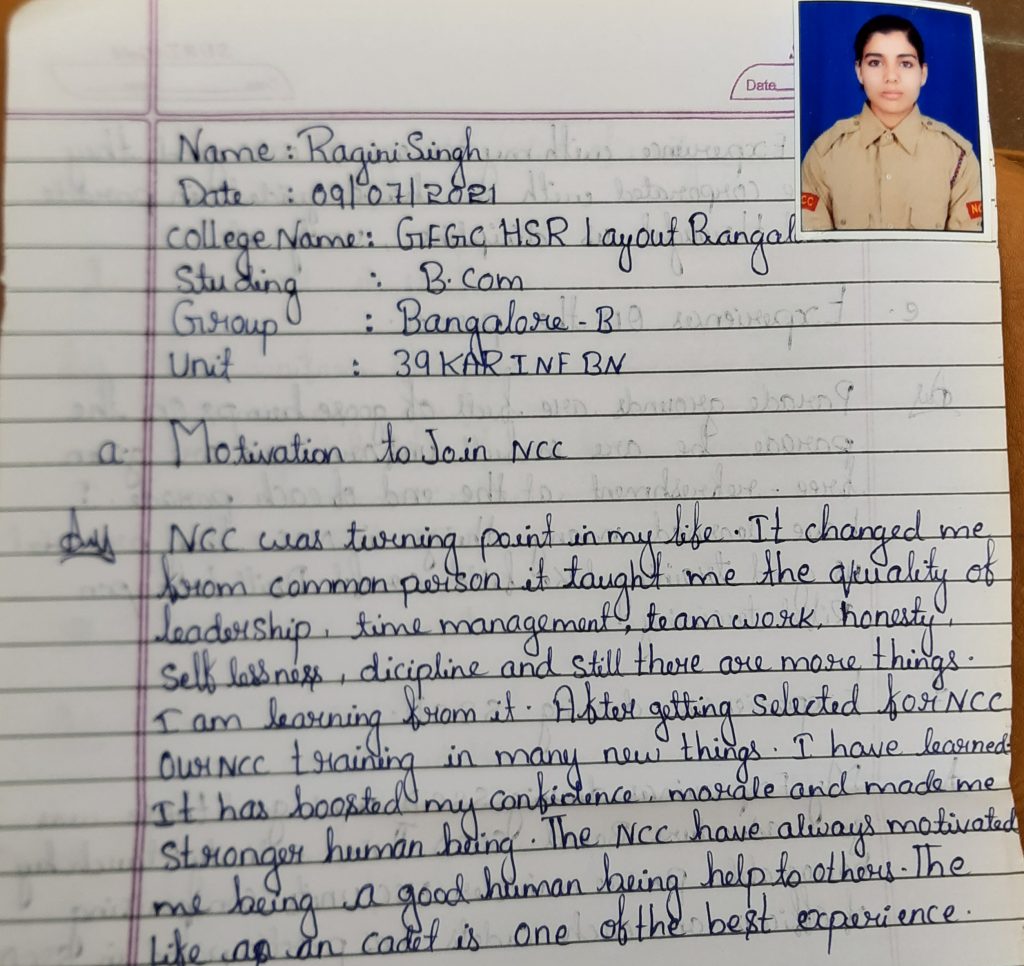 Date
Name : Ragini Singh
Date : 09/07/2021
College Name : GFGC HSR Layout Bangal
Studing : B.Com
Group : Bangalore - B
Unit : 39 KAR INF BN
a. Motivation to Join NCC
Ans NCC was turning point in my life. It changed me
from common person it taught me the quality of
leadership, time management, team work, honesty,
Self lessness, dicipline and still there are more things.
I am learning from it. After getting selected for NCC
our NCC training in many new things. I have learned
It has boosted my confidence, morale and made me
stronger human being. The NCC have always motivated
me being a good human being help to others. The
Life as an cadet is one of the best experience.
CC
NC